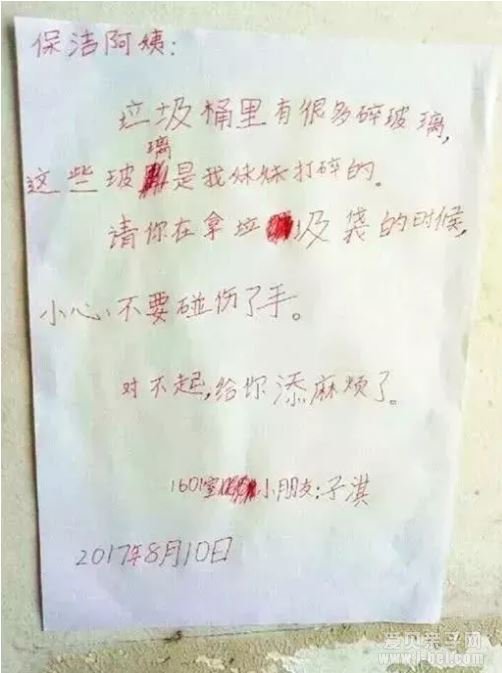 保洁阿姨:
垃圾桶里有很多碎玻璃,
这些玻璃是我妹妹打碎的.
请你在拿垃圾袋的时候,
小心,不要碰伤了手。
对不起,给你添麻烦了。
1601室小朋友:子淇
2017年8月10日
爱贝亲子网
www.i-bei.com